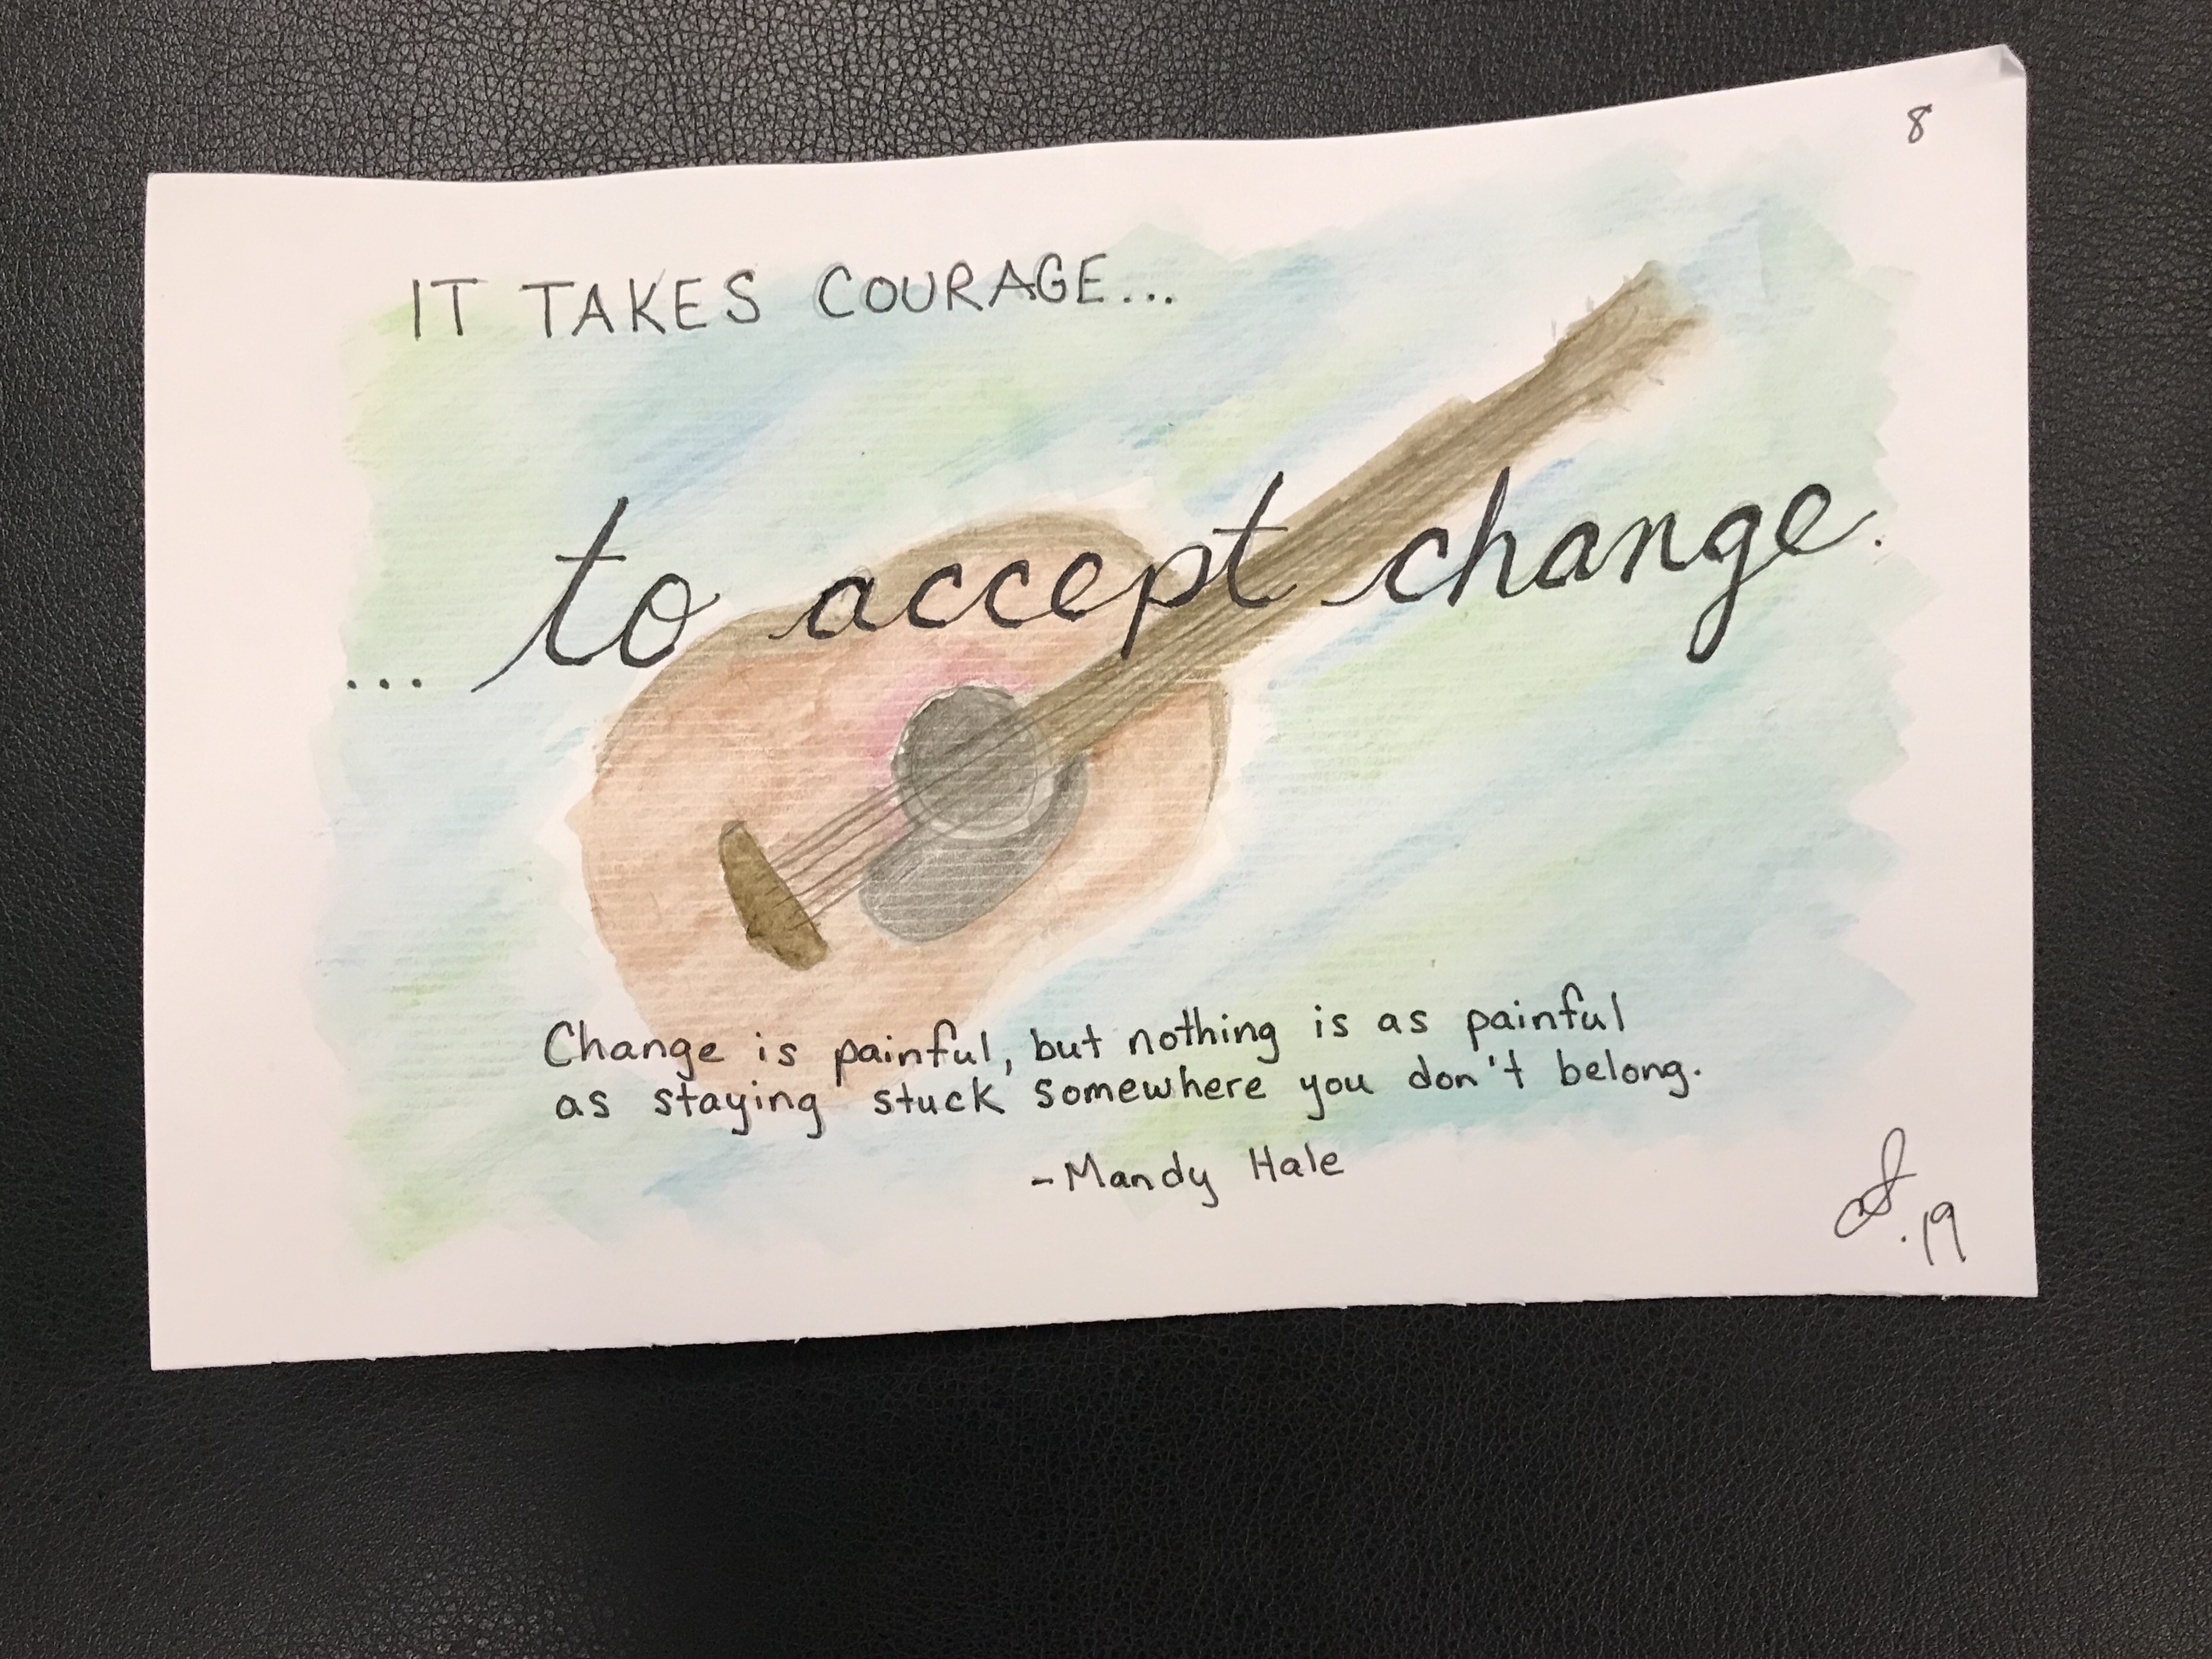 8
IT TAKES COURAGE...
... to accept change.
Change is painful, but nothing is as painful
as staying stuck somewhere you don't belong.
-Mandy Hale
.19